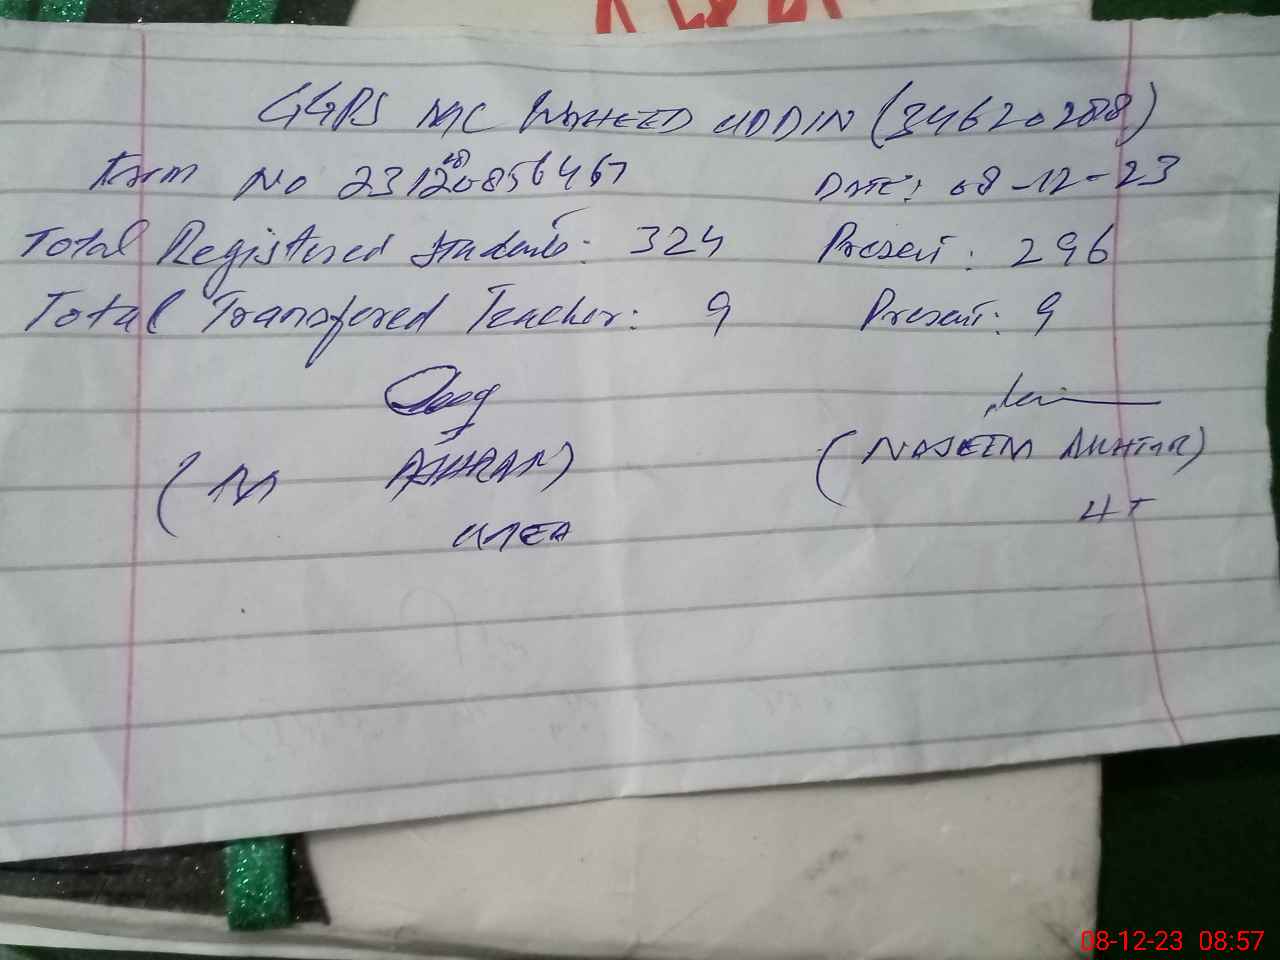 GGPS MC WAHEED UDDIN (34620288)
Form No 231208856467 DATE: 08-12-23
Total Registered Students: 324 Present: 296
Total Transfered Teacher: 9 Present: 9
(M ) (NASEEM AKHTAR)
HT
08-12-23 08:57